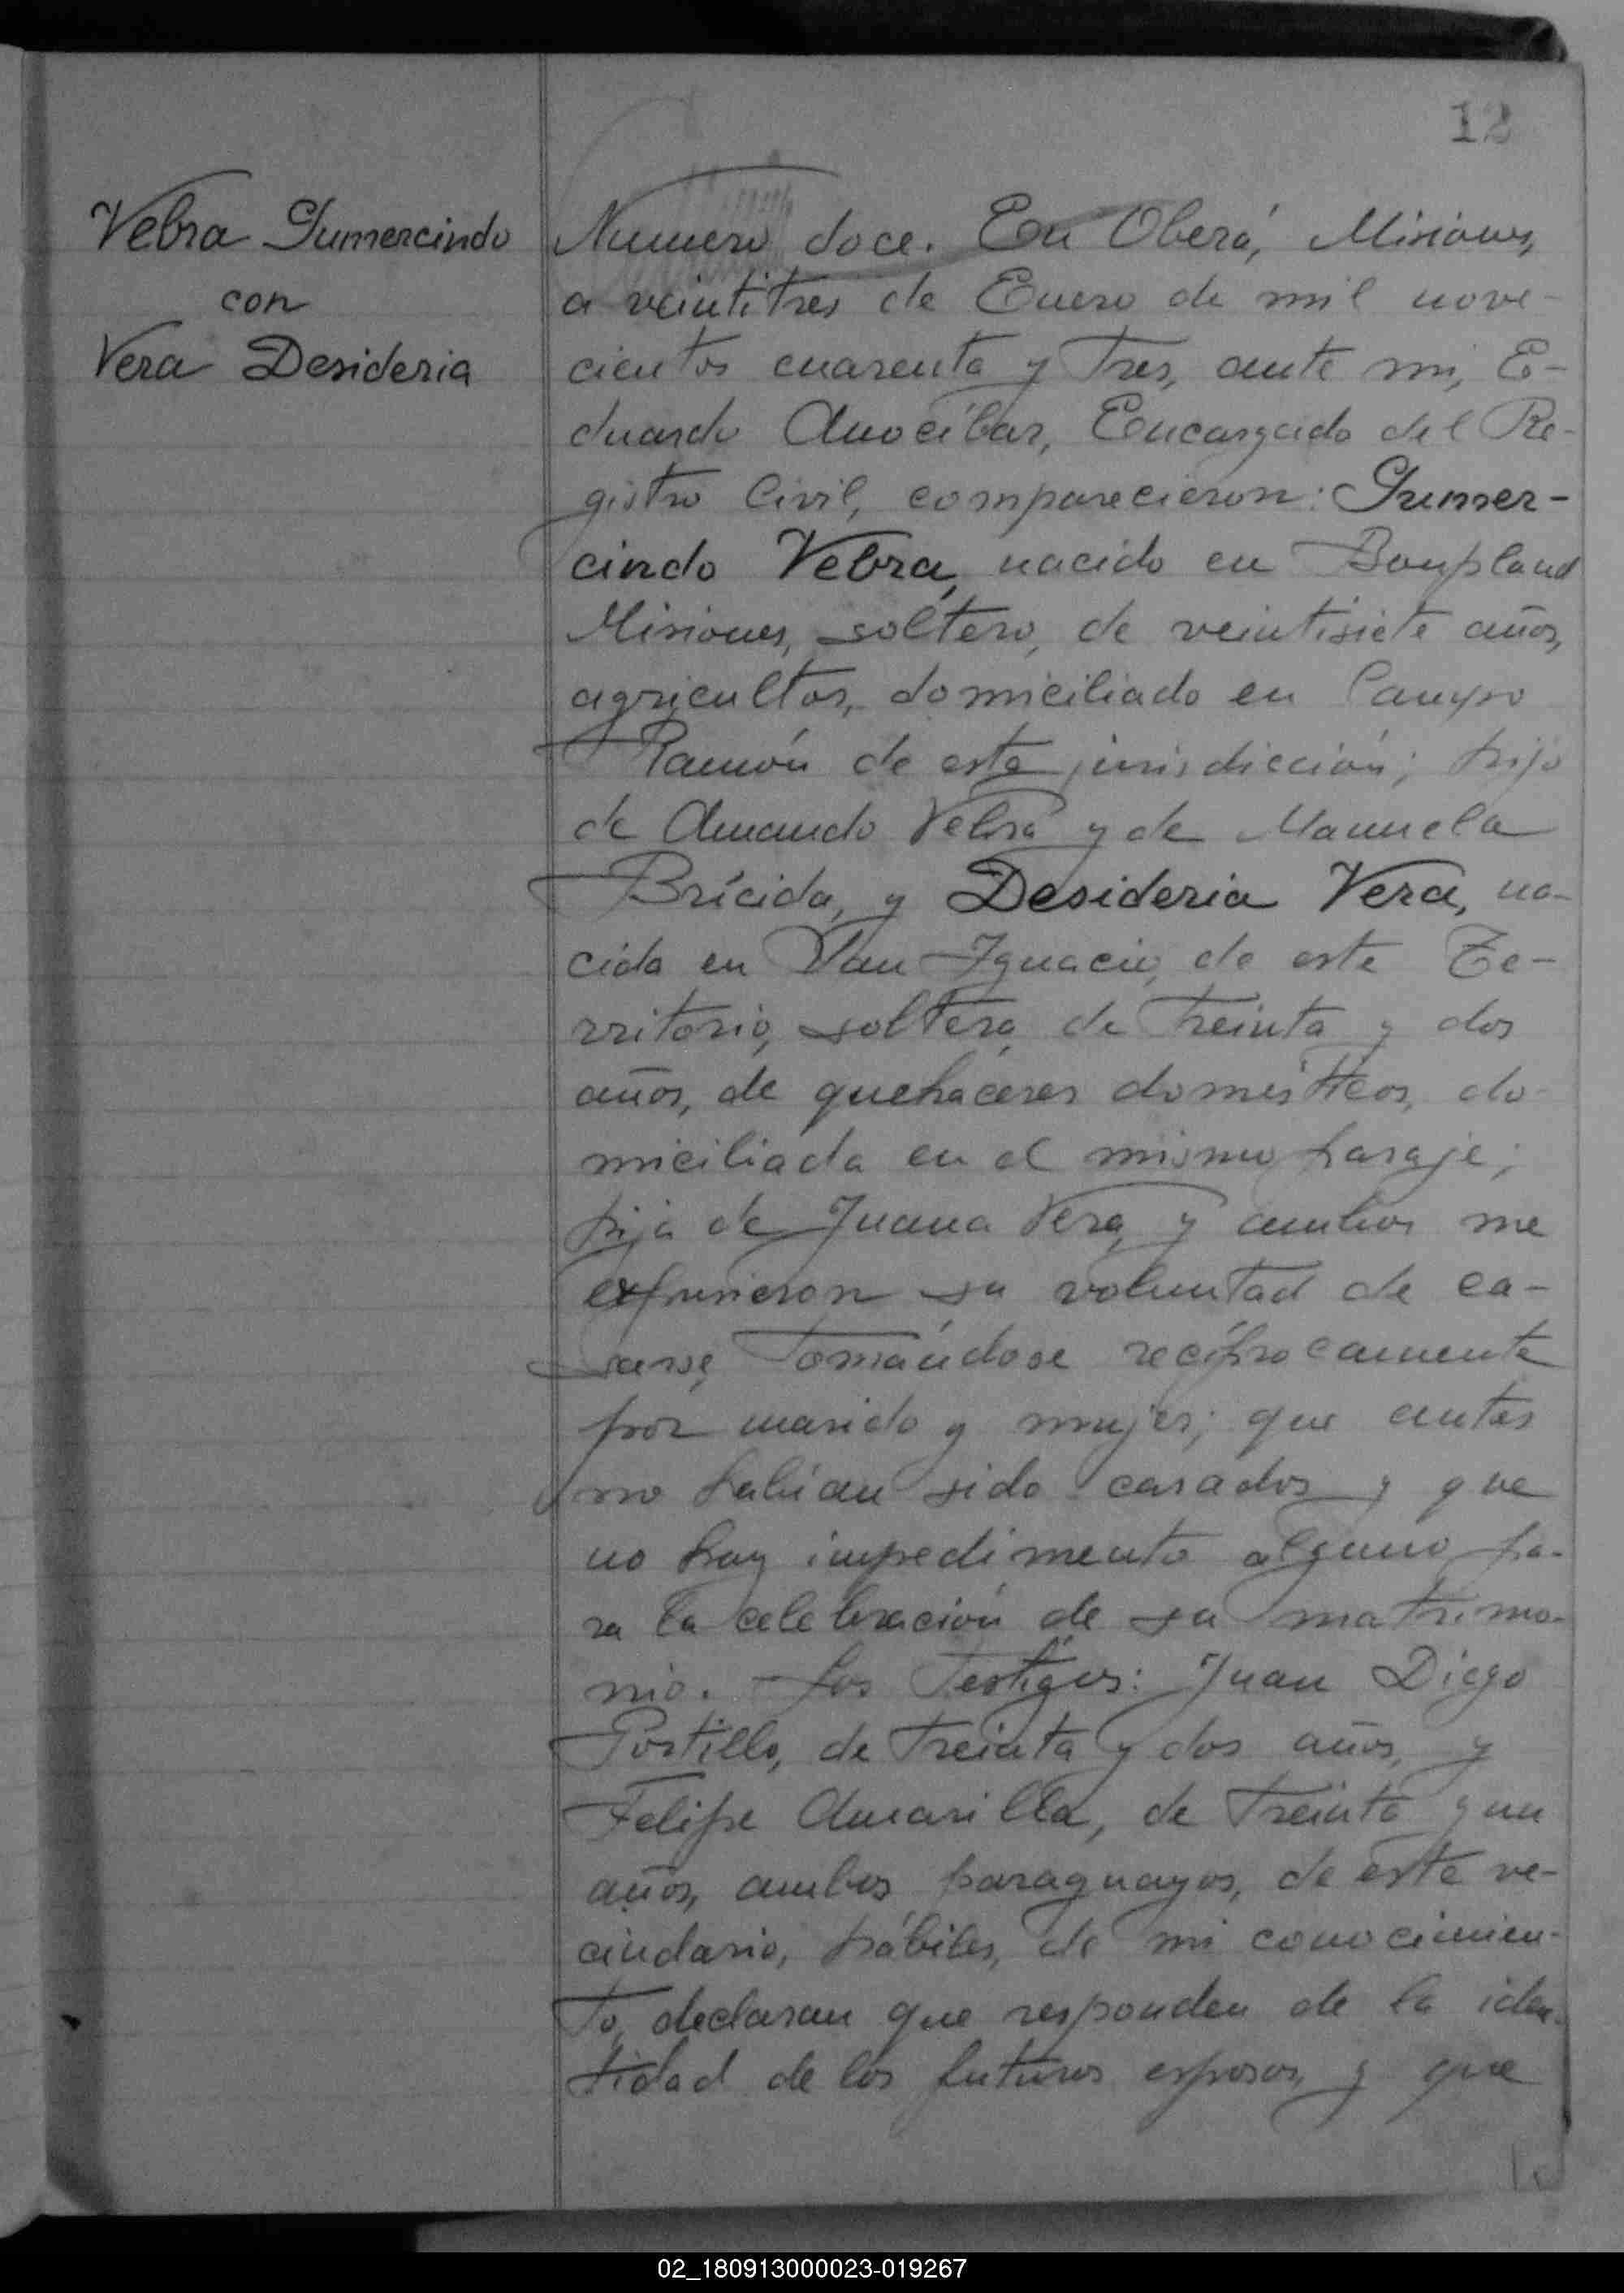 12
Vebra Gumercindo
con
Vera Desideria
Numero doce. En Oberá, Misiones,
a veintitres de Enero de mil nove-
cientos cuarenta y tres, ante mi, E-
duardo Anocíbar, Encargado del Re-
gistro Civil, comparecieron: Gumer-
cindo Vebra, nacido en Bonpland
Misiones, soltero, de veintisiete años,
agricultor, domiciliado en Campo
Ramón de esta jurisdicción; hijo
de Amando Vebra y de Manuela
Brícida, y Desideria Vera, na-
cida en San Ignacio, de este Te-
rritorio, soltera, de treinta y dos
años, de quehaceres domésticos, do-
miciliada en el mismo paraje;
hija de Juana Vera, y ambos me
expusieron su voluntad de ca-
sarse, tomándose recíprocamente
por marido y mujer; que antes
no habían sido casados y que
no hay impedimento alguno pa-
ra la celebración de su matrimo-
nio. Los Testigos: Juan Diego
Portillo, de treinta y dos años, y
Felipe Amarilla, de treinta y un
años, ambos paraguayos, de este ve-
cindario, hábiles, de mi conocimien-
to, declaran que responden de la iden-
tidad de los futuros esposos, y que
02_180913000023-019267